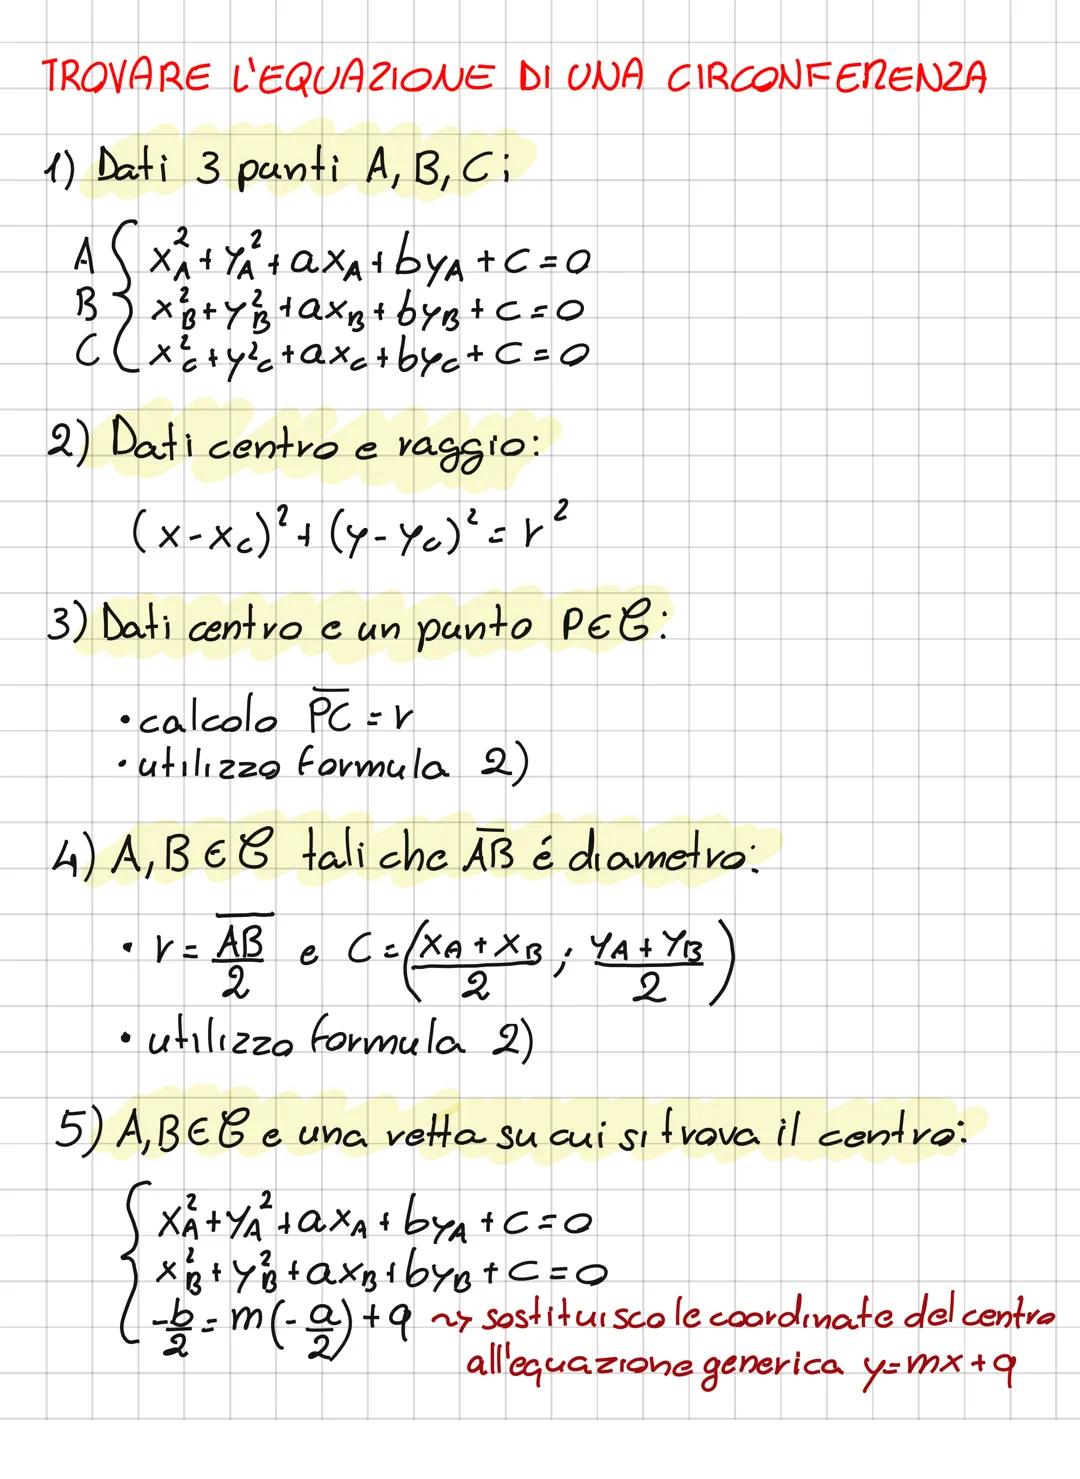 TROVARE L'EQUAZIONE DI UNA CIRCONFERENZA
1) Dati 3 punti A, B, C;
A { x²_A + y²_A + ax_A + by_A + c = 0
B { x²_B + y²_B + ax_B + by_B + c = 0
C { x²_C + y²_C + ax_C + by_C + c = 0
2) Dati centro e raggio:
(x - x_C)² + (y - y_C)² = r²
3) Dati centro e un punto P ∈ 𝒞:
• calcolo P̅C̅ = r
• utilizzo formula 2)
4) A, B ∈ 𝒞 tali che A̅B̅ é diametro:
• r = A̅B̅/2 e C = ((x_A + x_B)/2 ; (y_A + y_B)/2)
• utilizzo formula 2)
5) A, B ∈ 𝒞 e una retta su cui si trova il centro:
{ x²_A + y²_A + ax_A + by_A + c = 0
{ x²_B + y²_B + ax_B + by_B + c = 0
{ -b/2 = m(-a/2) + q ⇝ sostituisco le coordinate del centro
all'equazione generica y = mx + q